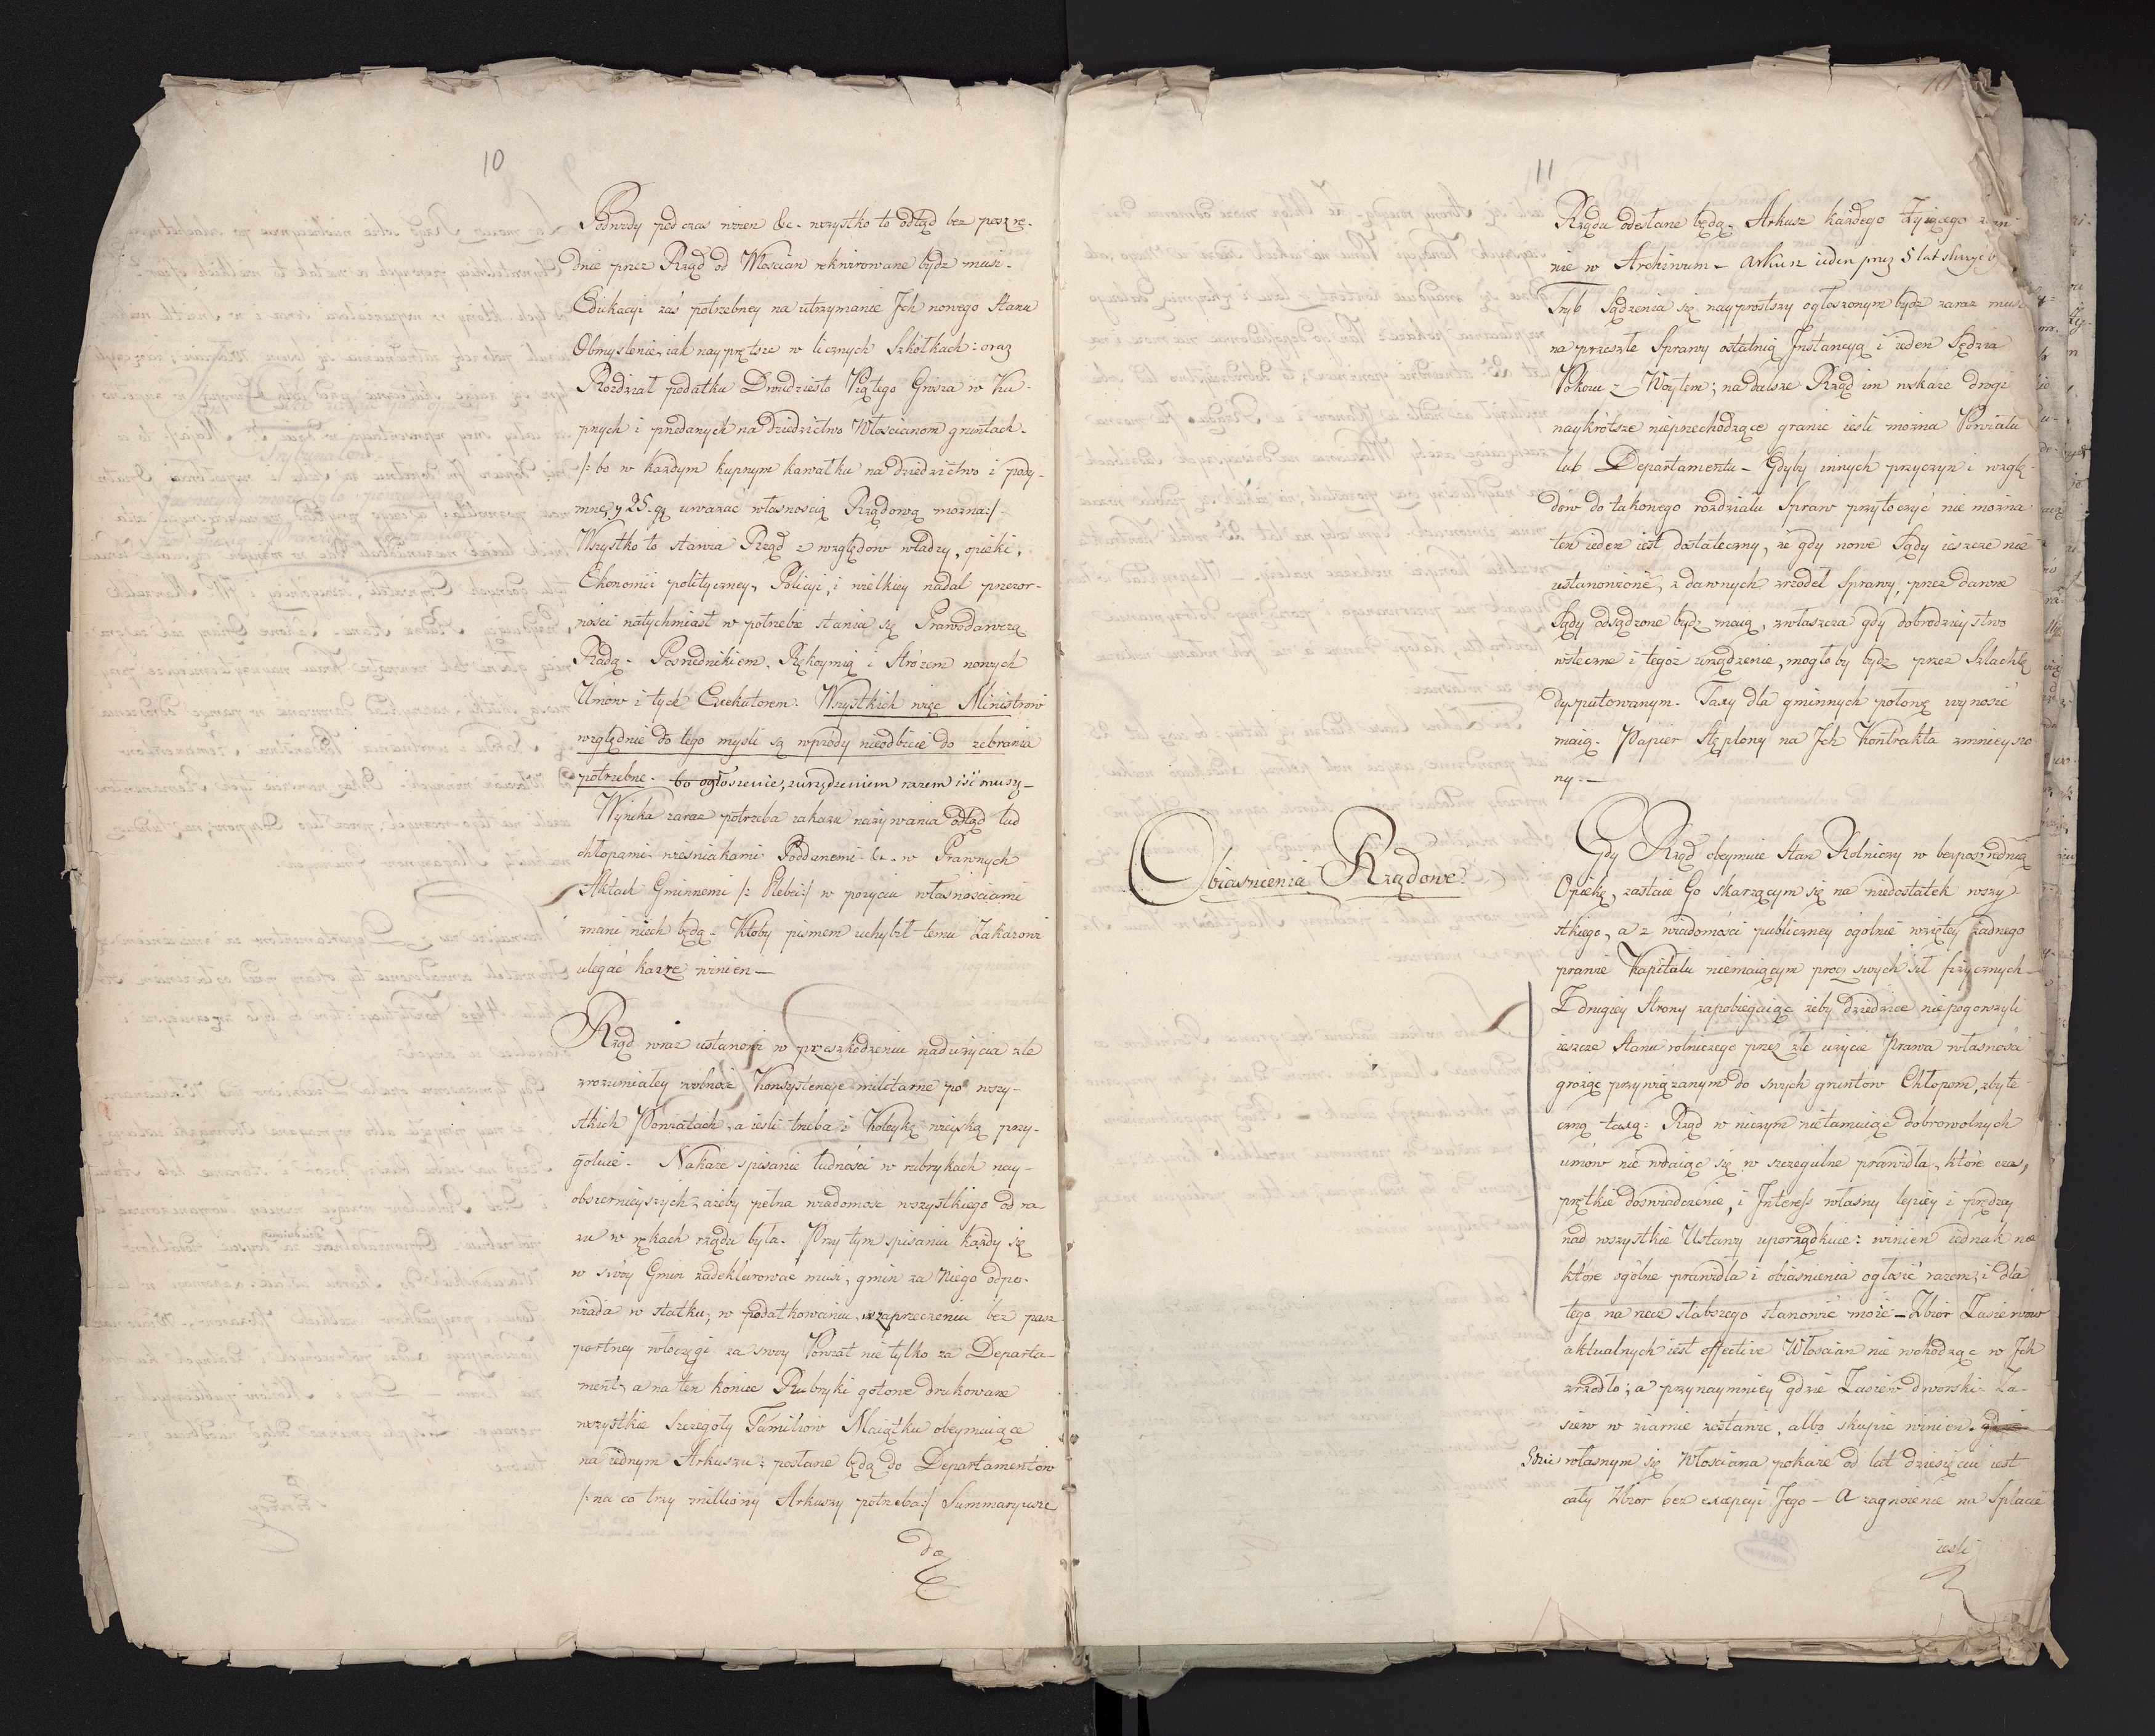 10
Podwody pod czas wozen &c. wszystko to odtąd bez poszre-
dnie przez Rząd od Włoscian rekwirowane bydz musi.
Edukacyi zaś potrzebney na utrzymanie Jch nowego Stanu
Obmyslenie, iak nayprętsze w licznych Szkółkach: oraz
Rozdział podatku Dwudziesto Piątego Grosza w Ku-
pnych i przedanych na dziedzictwo Włoscianom gruntach.
/: bo w każdym kupnym kawałku na dziedzictwo i pody-
mne, y 25. gą uważać własnoscią Rządową można:/.
Wszystko to stawia Rząd z względow władzy, opieki,
Ekonomii polityczney, Policyi, i wielkiey nadal przezor-
ności natychmiast w potrzebie stania się Prawodawczą
Radą. Posrednikiem. Rękoymią i Stróżem nowych
Umow i tych Exekutorem. Wszystkich więc Ministrów
względnie do tego mysli są wprzody nieodbicie do zebrania
potrzebne. bo ogłoszenie, z urządzeniem razem iść muszą_
Wynika zaraz potrzeba zakazu nazywania odtąd lud
chłopami wieśniakami Poddanemi &c. w Prawnych
Aktach Gminnemi /: Plebei:/ w pożyciu włascnosciami
zwani niech będą. Ktoby pismem uchybił temu Zakazowi
ulegać karze winien_
Rząd wraz ustanowi w przeszkodzeniu nadużycia zle
zrozumiałey wolnosci Konsystencye militarne po wszy-
stkich Powiatach, a iesli trzeba i Koleykę wieyską przy-
gotuie. Nakaze spisanie ludności w rubrykach nay-
obszernieyszych, ażeby pełna wiadomosc wszystkiego od ra
zu w rękach rządu była. Przy tym spisaniu każdy się
w swoy Gmin zadeklarować musi, gmin za niego odpo-
wiada w statku, w podatkowaniu, w zaprzeczeniu bez pasz
portney włoczęgi za swoy Powiat nie tylko za Departa-
ment, a na ten koniec Rubryki gotowe drukowane
wszystkie Szczegoły Familiow Maiątku obeymuiące
na iednym Arkuszu: posłane będą do Departamentow
/: na co trzy milliony Arkuszy potrzeba:/ Summaryusze
do
11
Rządu odesłane będą. Arkusz każdego Żyiącego
nie w Archiwum - Arkusz ieden przez 5 lat służyć
Tryb Sądzenia się nayprostszy ogłoszonym bydz zaraz musi
na przeszłe Sprawy ostatnią Instancyą i ieden Sędzia
Pokoiu z Woytem; na dalsze Rząd im wskaże drogi
naykrótsze nieprzechodzące granic iesli można Powiatu
lub Departamentu - Gdyby innych przyczyn i wzglę-
dów do takowego rozdziału Spraw przytoczyć nie można
ten ieden iest dostateczny, że gdy nowe Sądy ieszcze nie
ustanowione, z dawnych zrzodeł Sprawy, przez dawne
Sądy odsądzone bydz maią, zwłaszcza gdy dobrodzieystwo
wsteczne i tegoż urządzenie, mogłoby bydz przez Szlachtę
dysputowanym. Taxy dla gminnych połowę wynosić
maią. Papier stęplony na Jch Kontrakta zmnieyszo
ny.
Obiasnienia Rządowe.
Gdy Rząd obeymuie Stan Rolniczy w bezposzrednią
Opiekę, zastaie Go skarzącym się na niedostatek wszy
stkiego, a z wiadomości publiczney ogolnie wziętey żadnego
prawie Kapitału niemaiącym procz swych sił fizycznych_
Z drugiey Strony zapobiegaiąc żeby dziedzice niepogorszyli
ieszcze Stanu rolniczego przez złe użycie Prawa własności
grożąc przywiązanym do swych gruntow Chłopom, zbyte-
czną taxą: Rząd w niczym nietamuiąc dobrowolnych
umów nie wdaiąc się w szczegulne prawidła, które czas,
prętkie doswiadczenie, i Interess własny lepiey i prędzey
nad wszystkie Ustawy uporządkuie: winien iednak nie
które ogólne prawidła i obiasnienia ogłosić razem, i dla
tego na rzecz słabszego stanowić może - Zbior Zasiewów
aktualnych iest effective Włoscian nie wchodząc w Jch
zrzodło; a przynaymniey gdzie Zasiew dworski. Za-
siew w ziarnie zostawie, albo skupić winien.
Gdzie własnym się Włosciana pokaże od lat dziesięciu iest
cały Zbior bez excepcyi Jego - A zagnoienie na Spłacie
iesli